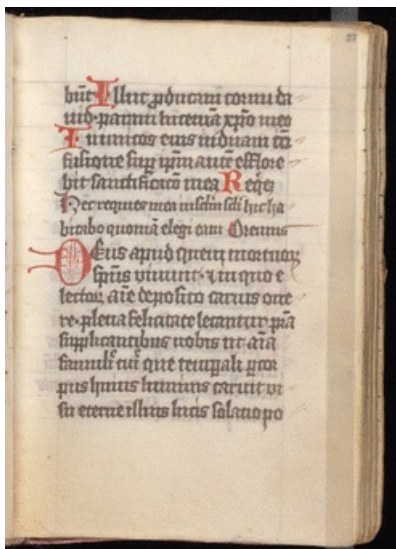 bũt Illuc ꝓducam cornu da
uid· paraui lucernã xp̃o meo
Inimicos eius induam cõ
fusione sup ip̃m autẽ efflore
bit sanctificatõ mea Reqẽ
Hec requies mea in sclm̃ scli hic ha
bitabo quoniã elegi eam Oremus
Deus apud quem mortuoꝝ
sp̃us viuunt· ⁊ in quo e
lectoꝝ aĩe deposito carnis one
re· plena felicitate letantur p̃ta
supplicantibus nobis ut aĩa
famuli tui que temporali ꝑ cor
pus huius luminis caruit vi
su eterne illius lucis solatio po